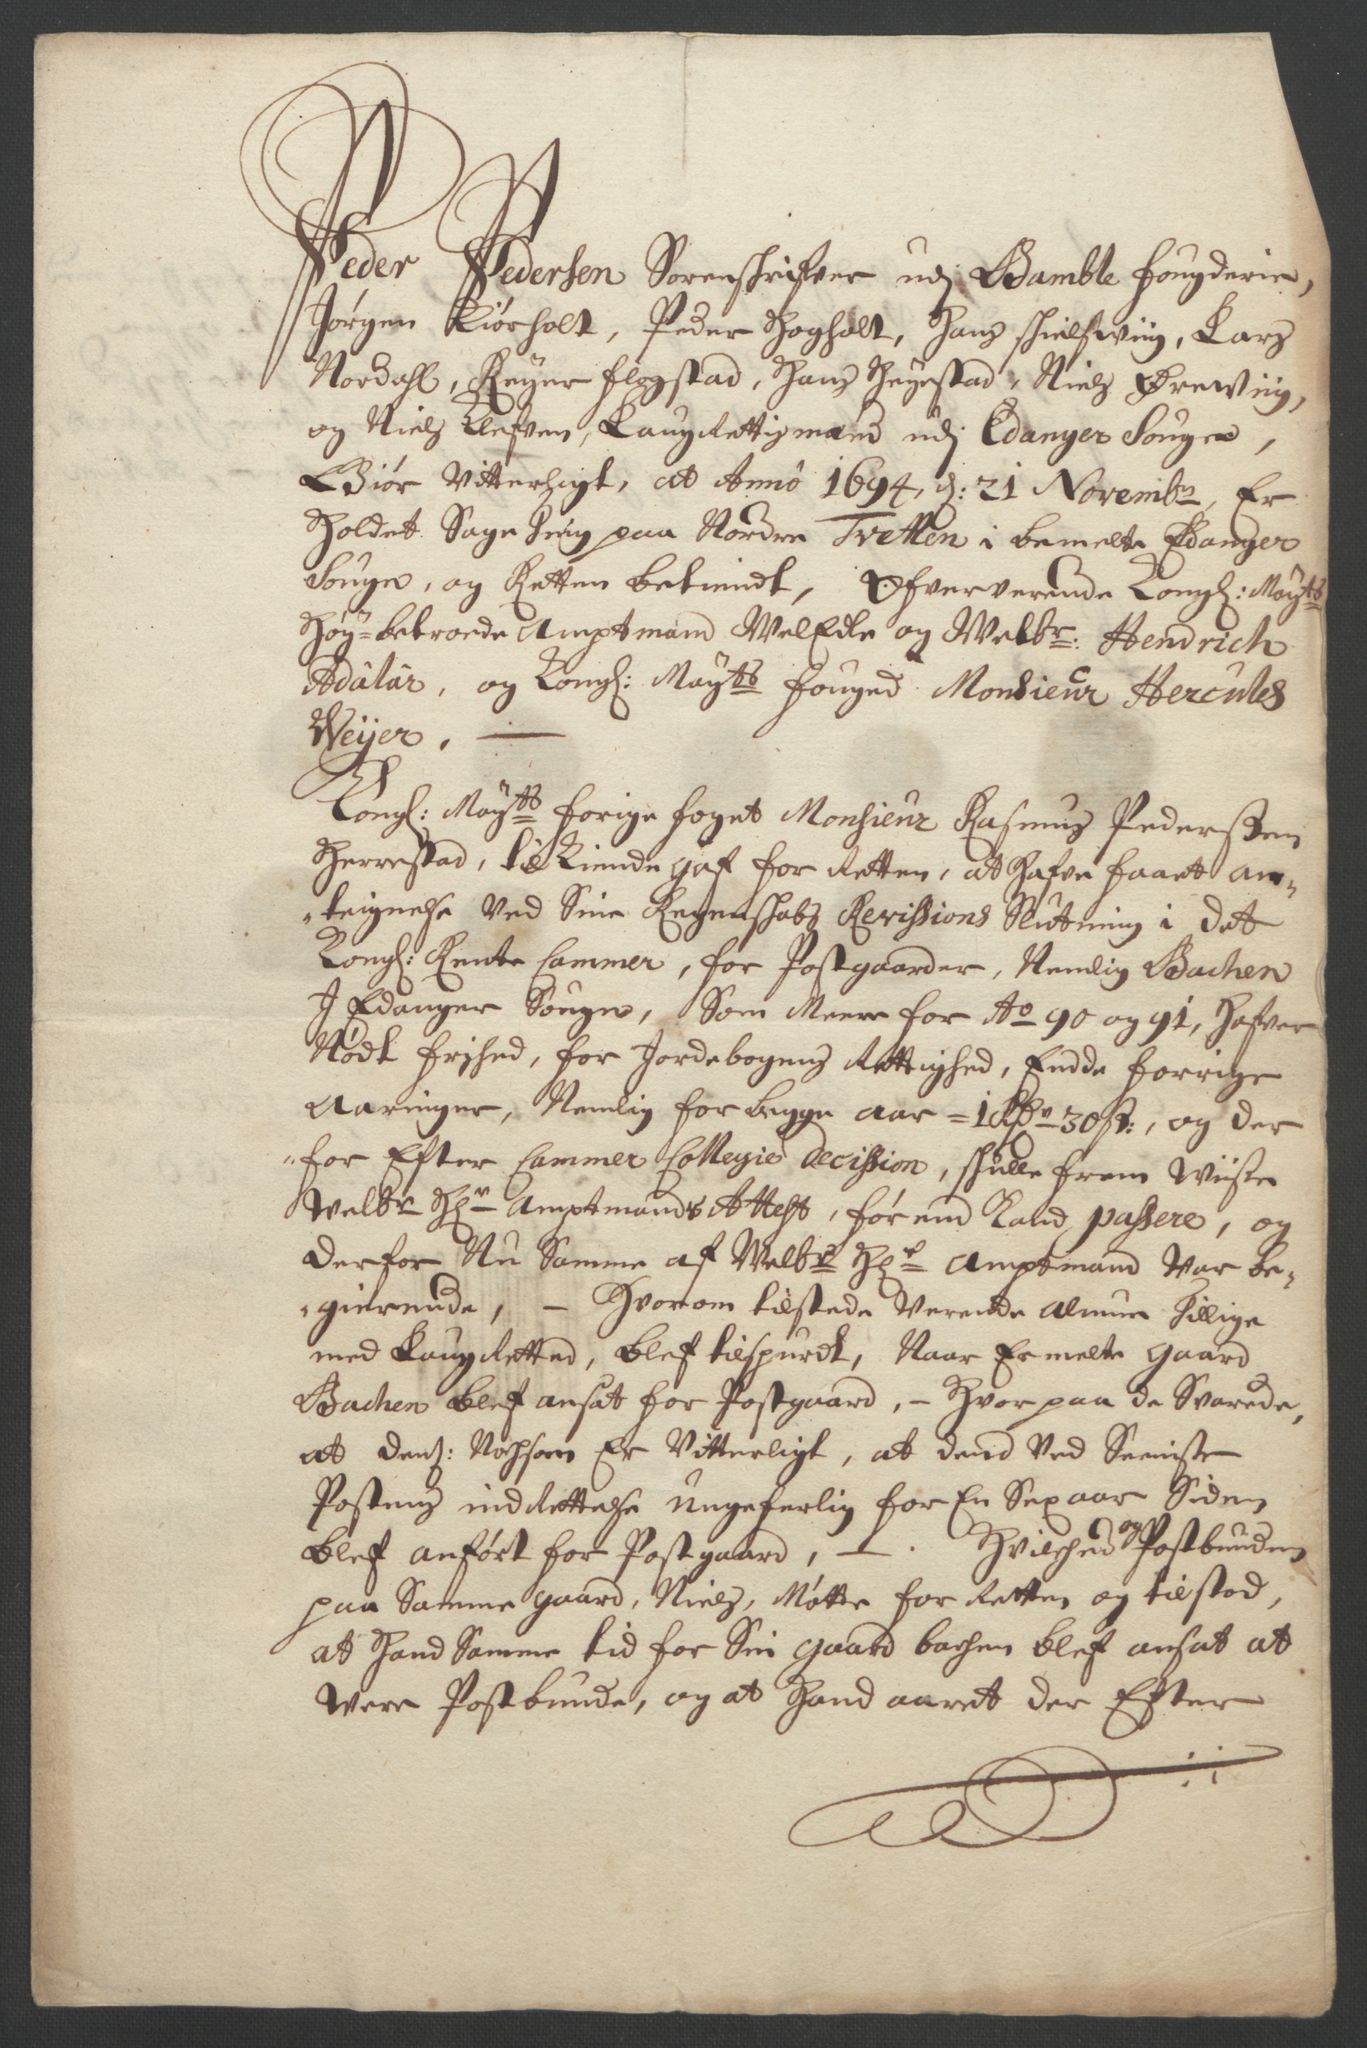 Peder Pedersen Sorenschrifver udj Bamble fougderie,
Jørgen Kiørholt, Peder Hogholt, Hans schielswiig, Lars
Nordahl, Reyer flogstad, Hans Heyestad, Niels Ørewiig,
og Niels Klefven, Laugrettismænd udj Edanger Sougn,
Giør Vitterligt, at Anno 1694, d: 21 Novembr, Er
Holdet Sageting paa Nordre Tvetten i bemelte Edanger
Sougn, og Retten betiendt, Ofververende Kongl: Mayts
Høy-betroede Amptmand WelEdle og Welbr: Hendrich
Adålår, og Kongl: Mayts fouged Monsieur Hercules
Weijer, —
Kongl: Mayts forige foget Monsieur Rasmus Pederssen
Herrestad, tilkiende gaf for Retten, at hafve faaet an-
-teignelse ved Sine Regenskabs Revissions Slutning i det
Kongl: Rente Cammer, for Postgaarder, Nemlig Bachen
J Edanger Sougn, Som Meere for Ao 90 og 91, hafver
Nødt frihed, for Jordebogens Rettighed, Endde forrige
Aaringer, Nemlig for begge aar = 1 Rdr 30 s:, og der
-for Efter Cammer Collegie Decission, skulle frem wiise
Welbr Hr Amptmands Attest, før end Kand passere, og
derfor Nu Samme af Welbr Hr Amptmand Var be-
-gierende, — Hvorom tilstede Verende Almue tillige
med Laugretted, blef tilspurdt, Naar Ermelte gaard
Bachen blef ansat for Postgaard, — Hvorpaa de Svarede,
at dens: Nochsom Er Vitterligt, at dend Ved Seeniste
Postens indrettelse ungeferlig for En Sex aar Siden
blef anført for Postgaard, —. Hvilched og Postbunden
paa Samme gaard, Niels, Møtte for Retten og tilstod,
at Hand Samme tid for Sin gaard bachen blef ansat at
were Postbunde, og at Hand aaret der Efter